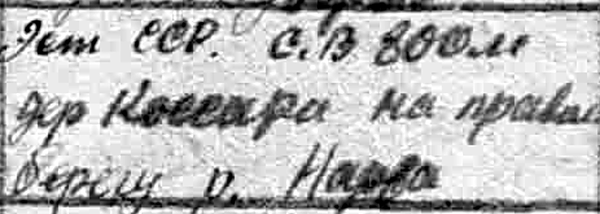 Эст ССР. С.В 800м
дер Коссари на правом
берегу р. Нарва